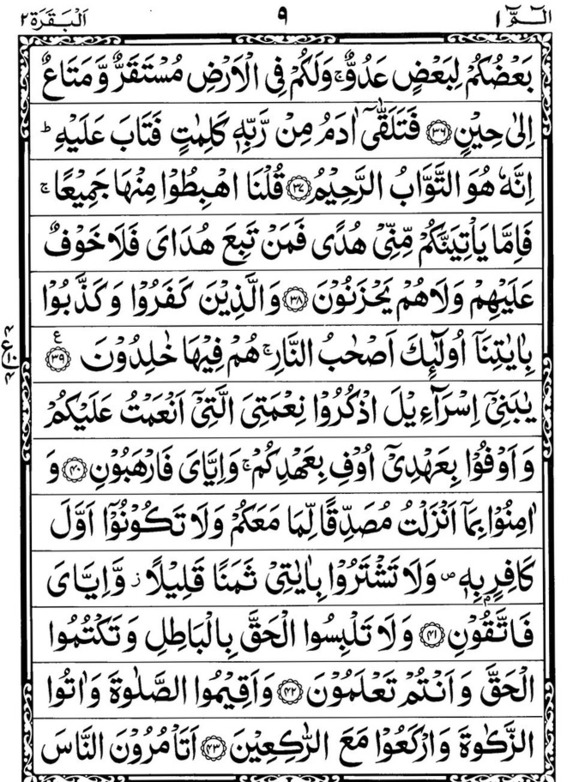 الٓمّٓ ١ ٩ اَلْبَقَرَة ٢
بَعْضُكُمْ لِبَعْضٍ عَدُوٌّ ۚ وَلَكُمْ فِى الْاَرْضِ مُسْتَقَرٌّ وَّمَتَاعٌ
اِلٰى حِيْنٍ ﴿٣٦﴾ فَتَلَقّٰٓى اٰدَمُ مِنْ رَّبِّهٖ كَلِمٰتٍ فَتَابَ عَلَيْهِ ؕ
اِنَّهٗ هُوَ التَّوَّابُ الرَّحِيْمُ ﴿٣٧﴾ قُلْنَا اهْبِطُوْا مِنْهَا جَمِيْعًا ۚ
فَاِمَّا يَاْتِيَنَّكُمْ مِّنِّىْ هُدًى فَمَنْ تَبِعَ هُدَاىَ فَلَا خَوْفٌ
عَلَيْهِمْ وَلَا هُمْ يَحْزَنُوْنَ ﴿٣٨﴾ وَالَّذِيْنَ كَفَرُوْا وَكَذَّبُوْا
بِاٰيٰتِنَآ اُولٰٓئِكَ اَصْحٰبُ النَّارِ ۚ هُمْ فِيْهَا خٰلِدُوْنَ ﴿٣٩﴾ ع
٤ ع ١٠ ٤
يٰبَنِىْٓ اِسْرَآءِيْلَ اذْكُرُوْا نِعْمَتِىَ الَّتِىْٓ اَنْعَمْتُ عَلَيْكُمْ
وَاَوْفُوْا بِعَهْدِىْٓ اُوْفِ بِعَهْدِكُمْ ۚ وَاِيَّاىَ فَارْهَبُوْنِ ﴿٤٠﴾ وَ
اٰمِنُوْا بِمَآ اَنْزَلْتُ مُصَدِّقًا لِّمَا مَعَكُمْ وَلَا تَكُوْنُوْٓا اَوَّلَ
كَافِرٍۢ بِهٖ ۖ وَلَا تَشْتَرُوْا بِاٰيٰتِىْ ثَمَنًا قَلِيْلًا ز وَّاِيَّاىَ
فَاتَّقُوْنِ ﴿٤١﴾ وَلَا تَلْبِسُوا الْحَقَّ بِالْبَاطِلِ وَتَكْتُمُوا
الْحَقَّ وَاَنْتُمْ تَعْلَمُوْنَ ﴿٤٢﴾ وَاَقِيْمُوا الصَّلٰوةَ وَاٰتُوا
الزَّكٰوةَ وَارْكَعُوْا مَعَ الرّٰكِعِيْنَ ﴿٤٣﴾ اَتَاْمُرُوْنَ النَّاسَ